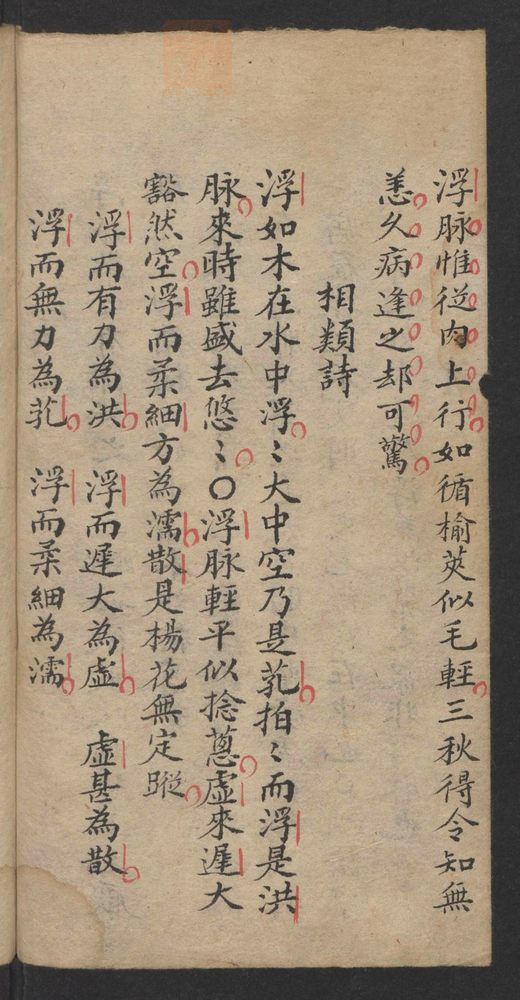 浮脉惟從肉上行如循榆莢似毛輕三秋得令知無
恙久病逢之却可驚
相類詩
浮如木在水中浮〻大中空乃是芤拍〻而浮是洪
脉來時雖盛去悠〻○浮脉輕平似捻葱虛來遲大
豁然空浮而柔細方為濡散是楊花無定蹤
浮而有力為洪 浮而遲大為虛 虛甚為散
浮而無力為芤 浮而柔細為濡